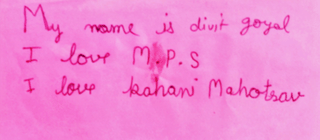 My name is divit goyal
I love M.P.S
I love kahani Mahotsav